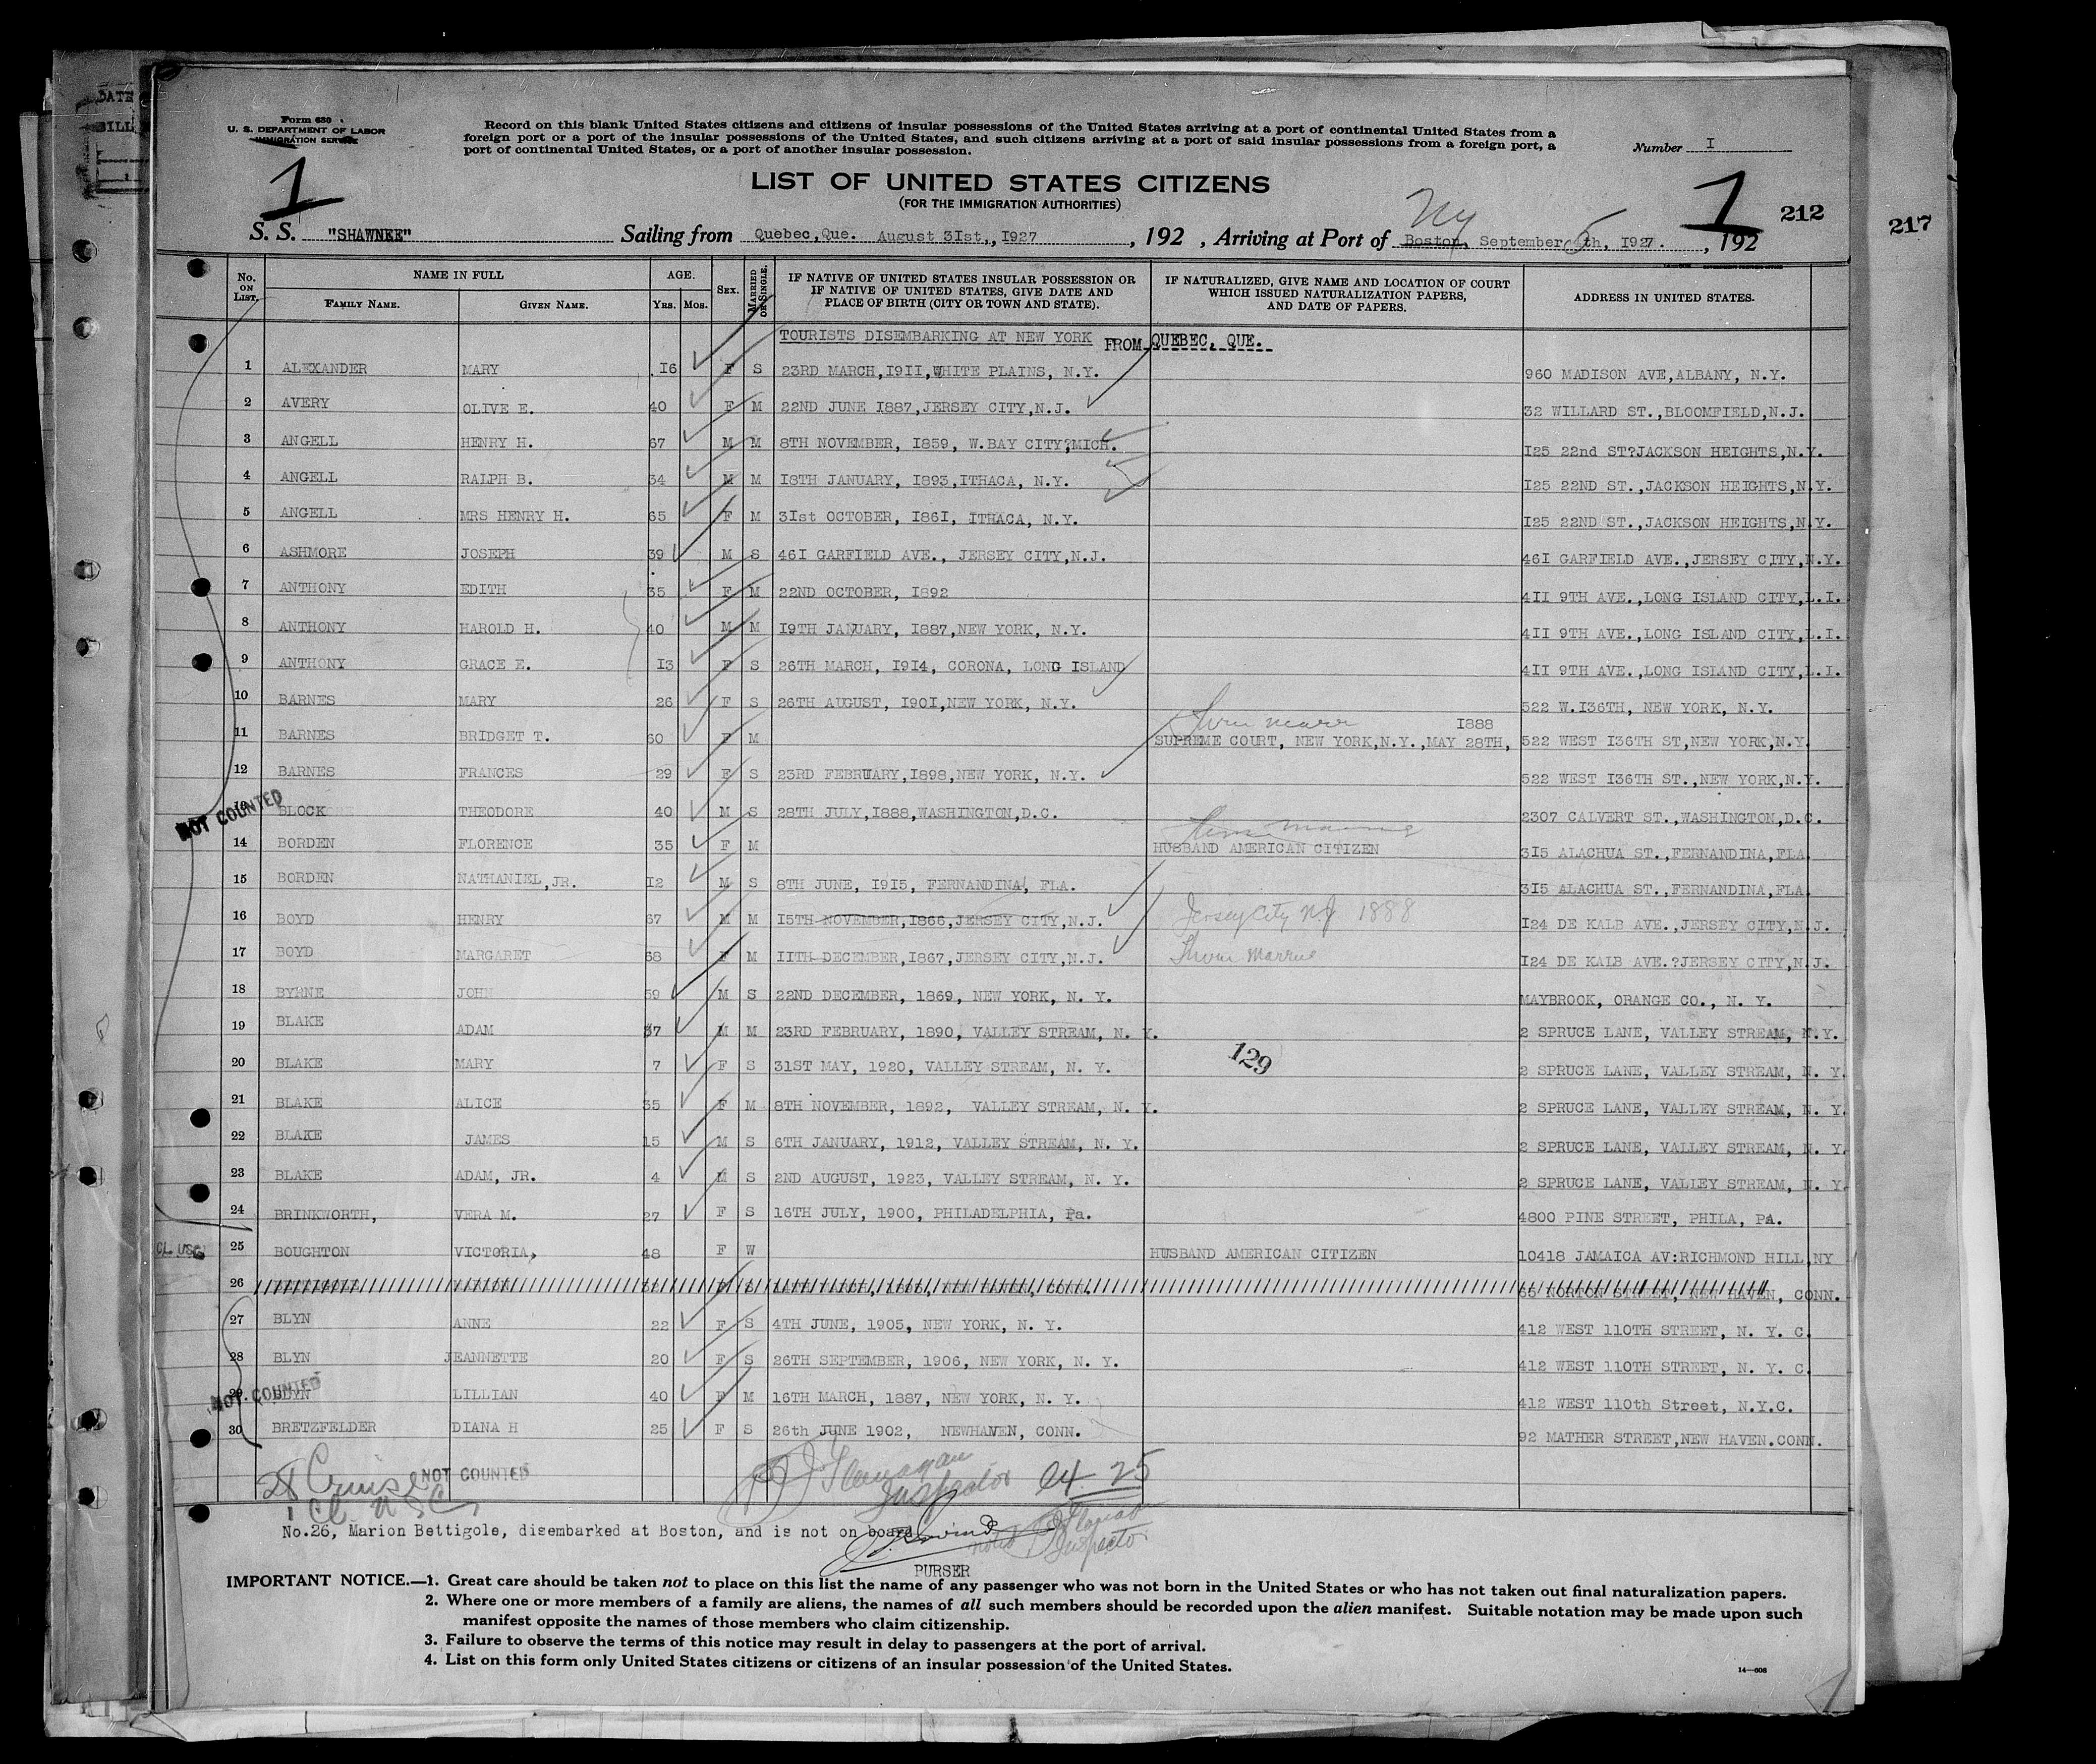 DATE
BILL
Form 630
U. S. DEPARTMENT OF LABOR
IMMIGRATION SERVICE
Record on this blank United States citizens and citizens of insular possessions of the United States arriving at a port of continental United States from a
foreign port or a port of the insular possessions of the United States, and such citizens arriving at a port of said insular possessions from a foreign port, a
port of continental United States, or a port of another insular possession.
Number I
1
LIST OF UNITED STATES CITIZENS
(FOR THE IMMIGRATION AUTHORITIES)
NY
1
212
217
S. S. "SHAWNEE" Sailing from Quebec,Que. August 3Ist,, I927, 192 , Arriving at Port of Boston, September 5th, I927., 192
No. ON LIST. NAME IN FULL AGE. SEX. MARRIED OR SINGLE. IF NATIVE OF UNITED STATES INSULAR POSSESSION OR IF NATIVE OF UNITED STATES, GIVE DATE AND PLACE OF BIRTH (CITY OR TOWN AND STATE). IF NATURALIZED, GIVE NAME AND LOCATION OF COURT WHICH ISSUED NATURALIZATION PAPERS, AND DATE OF PAPERS. ADDRESS IN UNITED STATES.
FAMILY NAME. GIVEN NAME. YRS. MOS.
TOURISTS DISEMBARKING AT NEW YORK FROM QUEBEC, QUE.
1 ALEXANDER MARY I6 F S 23RD MARCH,I9II,WHITE PLAINS, N.Y. 960 MADISON AVE,ALBANY, N.Y.
2 AVERY OLIVE E. 40 F M 22ND JUNE I887,JERSEY CITY,N.J. 32 WILLARD ST.,BLOOMFIELD,N.J.
3 ANGELL HENRY H. 67 M M 8TH NOVEMBER, I859, W.BAY CITY?MICH. I25 22nd ST?JACKSON HEIGHTS,N.Y.
4 ANGELL RALPH B. 34 M M I8TH JANUARY, I893,ITHACA, N.Y. I25 22ND ST.,JACKSON HEIGHTS,N.Y.
5 ANGELL MRS HENRY H. 65 F M 3Ist OCTOBER, I86I, ITHACA, N.Y. I25 22ND ST.,JACKSON HEIGHTS,N.Y.
6 ASHMORE JOSEPH 39 M S 46I GARFIELD AVE., JERSEY CITY,N.J. 46I GARFIELD AVE.,JERSEY CITY,N.Y.
7 ANTHONY EDITH 35 F M 22ND OCTOBER, I892 4II 9TH AVE.,LONG ISLAND CITY,L.I.
8 ANTHONY HAROLD H. 40 M M I9TH JANUARY, I887,NEW YORK, N.Y. 4II 9TH AVE.,LONG ISLAND CITY,L.I.
9 ANTHONY GRACE E. I3 F S 26TH MARCH, I9I4, CORONA, LONG ISLAND 4II 9TH AVE.,LONG ISLAND CITY,L.I.
10 BARNES MARY 26 F S 26TH AUGUST, I90I,NEW YORK, N.Y. 522 W.I36TH, NEW YORK, N.Y.
I888
11 BARNES BRIDGET T. 60 F M SUPREME COURT, NEW YORK,N.Y.,MAY 28TH, 522 WEST I36TH ST,NEW YORK,N.Y.
12 BARNES FRANCES 29 F S 23RD FEBRUARY,I898,NEW YORK, N.Y. 522 WEST I36TH ST.,NEW YORK,N.Y.
NOT COUNTED
13 BLOCK THEODORE 40 M S 28TH JULY,I888,WASHINGTON,D.C. 2307 CALVERT ST.,WASHINGTON,D.C.
14 BORDEN FLORENCE 35 F M HUSBAND AMERICAN CITIZEN 3I5 ALACHUA ST.,FERNANDINA,FLA.
15 BORDEN NATHANIEL,JR. I2 M S 8TH JUNE, I9I5, FERNANDINA, FLA. 3I5 ALACHUA ST.,FERNANDINA,FLA.
16 BOYD HENRY 67 M M I5TH NOVEMBER,I866,JERSEY CITY,N.J. Jersey City N.J 1888 I24 DE KALB AVE.,JERSEY CITY,N.J.
17 BOYD MARGARET 58 F M IITH DECEMBER,I867,JERSEY CITY,N.J. I24 DE KALB AVE.?JERSEY CITY,N.J.
18 BYRNE JOHN 59 M S 22ND DECEMBER, 1869, NEW YORK, N. Y. MAYBROOK, ORANGE CO., N. Y.
19 BLAKE ADAM 37 M M 23RD FEBRUARY, 1890, VALLEY STREAM, N. Y. 2 SPRUCE LANE, VALLEY STREAM, N.Y.
129
20 BLAKE MARY 7 F S 31ST MAY, 1920, VALLEY STREAM, N. Y. 2 SPRUCE LANE, VALLEY STREAM, N. Y.
21 BLAKE ALICE 35 F M 8TH NOVEMBER, 1892, VALLEY STREAM, N. Y. 2 SPRUCE LANE, VALLEY STREAM, N. Y.
22 BLAKE JAMES 15 M S 6TH JANUARY, 1912, VALLEY STREAM, N. Y. 2 SPRUCE LANE, VALLEY STREAM, N. Y.
23 BLAKE ADAM, JR. 4 M S 2ND AUGUST, 1923, VALLEY STREAM, N. Y. 2 SPRUCE LANE, VALLEY STREAM, N. Y.
24 BRINKWORTH, VERA M. 27 F S 16TH JULY, 1900, PHILADELPHIA, Pa. 4800 PINE STREET, PHILA, PA.
CL. USC
25 BOUGHTON VICTORIA, 48 F W HUSBAND AMERICAN CITIZEN 10418 JAMAICA AV:RICHMOND HILL,NY
26 NEW HAVEN, CONN. NORTON STREET, NEW HAVEN, CONN.
27 BLYN ANNE 22 F S 4TH JUNE, 1905, NEW YORK, N. Y. 412 WEST 110TH STREET, N. Y. C.
28 BLYN JEANNETTE 20 F S 26TH SEPTEMBER, 1906, NEW YORK, N. Y. 412 WEST 110TH STREET, N. Y. C.
NOT COUNTED
29 BLYN LILLIAN 40 F M 16TH MARCH, 1887, NEW YORK, N. Y. 412 WEST 110th Street, N.Y.C.
30 BRETZFELDER DIANA H 25 F S 26th JUNE 1902, NEWHAVEN, CONN. 92 MATHER STREET,NEW HAVEN.CONN.
Cruise NOT COUNTED
Inspector
25
1 Cl. USC
No.26, Marion Bettigole, disembarked at Boston, and is not on board.
Inspector
PURSER
IMPORTANT NOTICE.—1. Great care should be taken not to place on this list the name of any passenger who was not born in the United States or who has not taken out final naturalization papers.
2. Where one or more members of a family are aliens, the names of all such members should be recorded upon the alien manifest. Suitable notation may be made upon such
manifest opposite the names of those members who claim citizenship.
3. Failure to observe the terms of this notice may result in delay to passengers at the port of arrival.
4. List on this form only United States citizens or citizens of an insular possession of the United States.
14—608